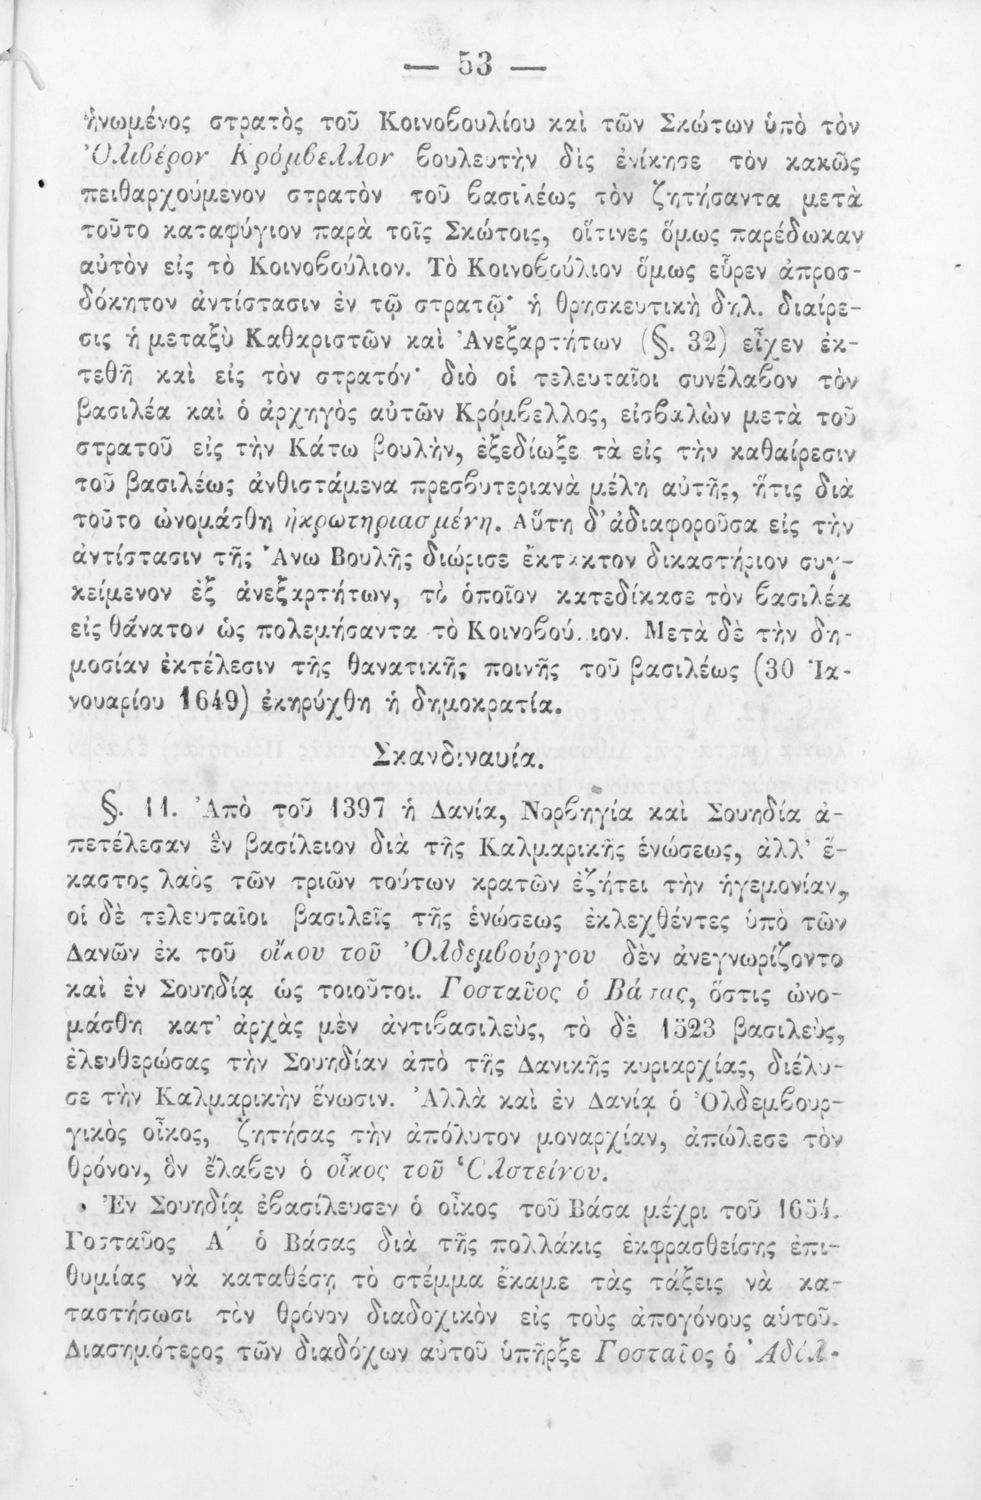 — 53 —
ἡνωμένος στρατὸς τοῦ Κοινοβουλίου καὶ τῶν Σκώτων ὑπὸ τὸν
Ὀλιβέρον Κρόμβελλον βουλευτὴν δὶς ἐνίκησε τὸν κακῶς
πειθαρχούμενον στρατὸν τοῦ βασιλέως τὸν ζητήσαντα μετὰ
τοῦτο καταφύγιον παρὰ τοῖς Σκώτοις, οἵτινες ὅμως παρέδωκαν
αὐτὸν εἰς τὸ Κοινοβούλιον. Τὸ Κοινοβούλιον ὅμως εὗρεν ἀπροσ-
δόκητον ἀντίστασιν ἐν τῷ στρατῷ· ἡ θρησκευτικὴ δηλ. διαίρε-
σις ἡ μεταξὺ Καθαριστῶν καὶ Ἀνεξαρτήτων (§. 32) εἶχεν ἐκ-
τεθῆ καὶ εἰς τὸν στρατόν· διὸ οἱ τελευταῖοι συνέλαβον τὸν
βασιλέα καὶ ὁ ἀρχηγὸς αὐτῶν Κρόμβελλος, εἰσβαλὼν μετὰ τοῦ
στρατοῦ εἰς τὴν Κάτω βουλὴν, ἐξεδίωξε τὰ εἰς τὴν καθαίρεσιν
τοῦ βασιλέως ἀνθιστάμενα πρεσβυτεριανὰ μέλη αὐτῆς, ἥτις διὰ
τοῦτο ὠνομάσθη ἠκρωτηριασμένη. Αὕτη δ' ἀδιαφοροῦσα εἰς τὴν
ἀντίστασιν τῆς Ἄνω Βουλῆς διώρισε ἔκτακτον δικαστήριον συγ-
κείμενον ἐξ ἀνεξαρτήτων, τὸ ὁποῖον κατεδίκασε τὸν βασιλέα
εἰς θάνατον ὡς πολεμήσαντα τὸ Κοινοβούλιον. Μετὰ δὲ τὴν δη-
μοσίαν ἐκτέλεσιν τῆς θανατικῆς ποινῆς τοῦ βασιλέως (30 Ἰα-
νουαρίου 1649) ἐκηρύχθη ἡ δημοκρατία.
Σκανδιναυία.
§. 11. Ἀπὸ τοῦ 1397 ἡ Δανία, Νορβηγία καὶ Σουηδία ἀ-
πετέλεσαν ἓν βασίλειον διὰ τῆς Καλμαρικῆς ἑνώσεως, ἀλλ' ἕ-
καστος λαὸς τῶν τριῶν τούτων κρατῶν ἐζήτει τὴν ἡγεμονίαν,
οἱ δὲ τελευταῖοι βασιλεῖς τῆς ἑνώσεως ἐκλεχθέντες ὑπὸ τῶν
Δανῶν ἐκ τοῦ οἴκου τοῦ Ὀλδεμβούργου δὲν ἀνεγνωρίζοντο
καὶ ἐν Σουηδίᾳ ὡς τοιοῦτοι. Γοσταῦος ὁ Βάσας, ὅστις ὠνο-
μάσθη κατ' ἀρχὰς μὲν ἀντιβασιλεὺς, τὸ δὲ 1523 βασιλεὺς,
ἐλευθερώσας τὴν Σουηδίαν ἀπὸ τῆς Δανικῆς κυριαρχίας, διέλυ-
σε τὴν Καλμαρικὴν ἕνωσιν. Ἀλλὰ καὶ ἐν Δανίᾳ ὁ Ὀλδεμβουρ-
γικὸς οἶκος, ζητήσας τὴν ἀπόλυτον μοναρχίαν, ἀπώλεσε τὸν
θρόνον, ὃν ἔλαβεν ὁ οἶκος τοῦ Ὁλστείνου.
Ἐν Σουηδίᾳ ἐβασίλευσεν ὁ οἶκος τοῦ Βάσα μέχρι τοῦ 1654.
Γοσταῦος Α΄ ὁ Βάσας διὰ τῆς πολλάκις ἐκφρασθείσης ἐπι-
θυμίας νὰ καταθέσῃ τὸ στέμμα ἔκαμε τὰς τάξεις νὰ κα-
ταστήσωσι τὸν θρόνον διαδοχικὸν εἰς τοὺς ἀπογόνους αὐτοῦ.
Διασημότερος τῶν διαδόχων αὐτοῦ ὑπῆρξε Γοσταῦος ὁ Ἀδόλ-